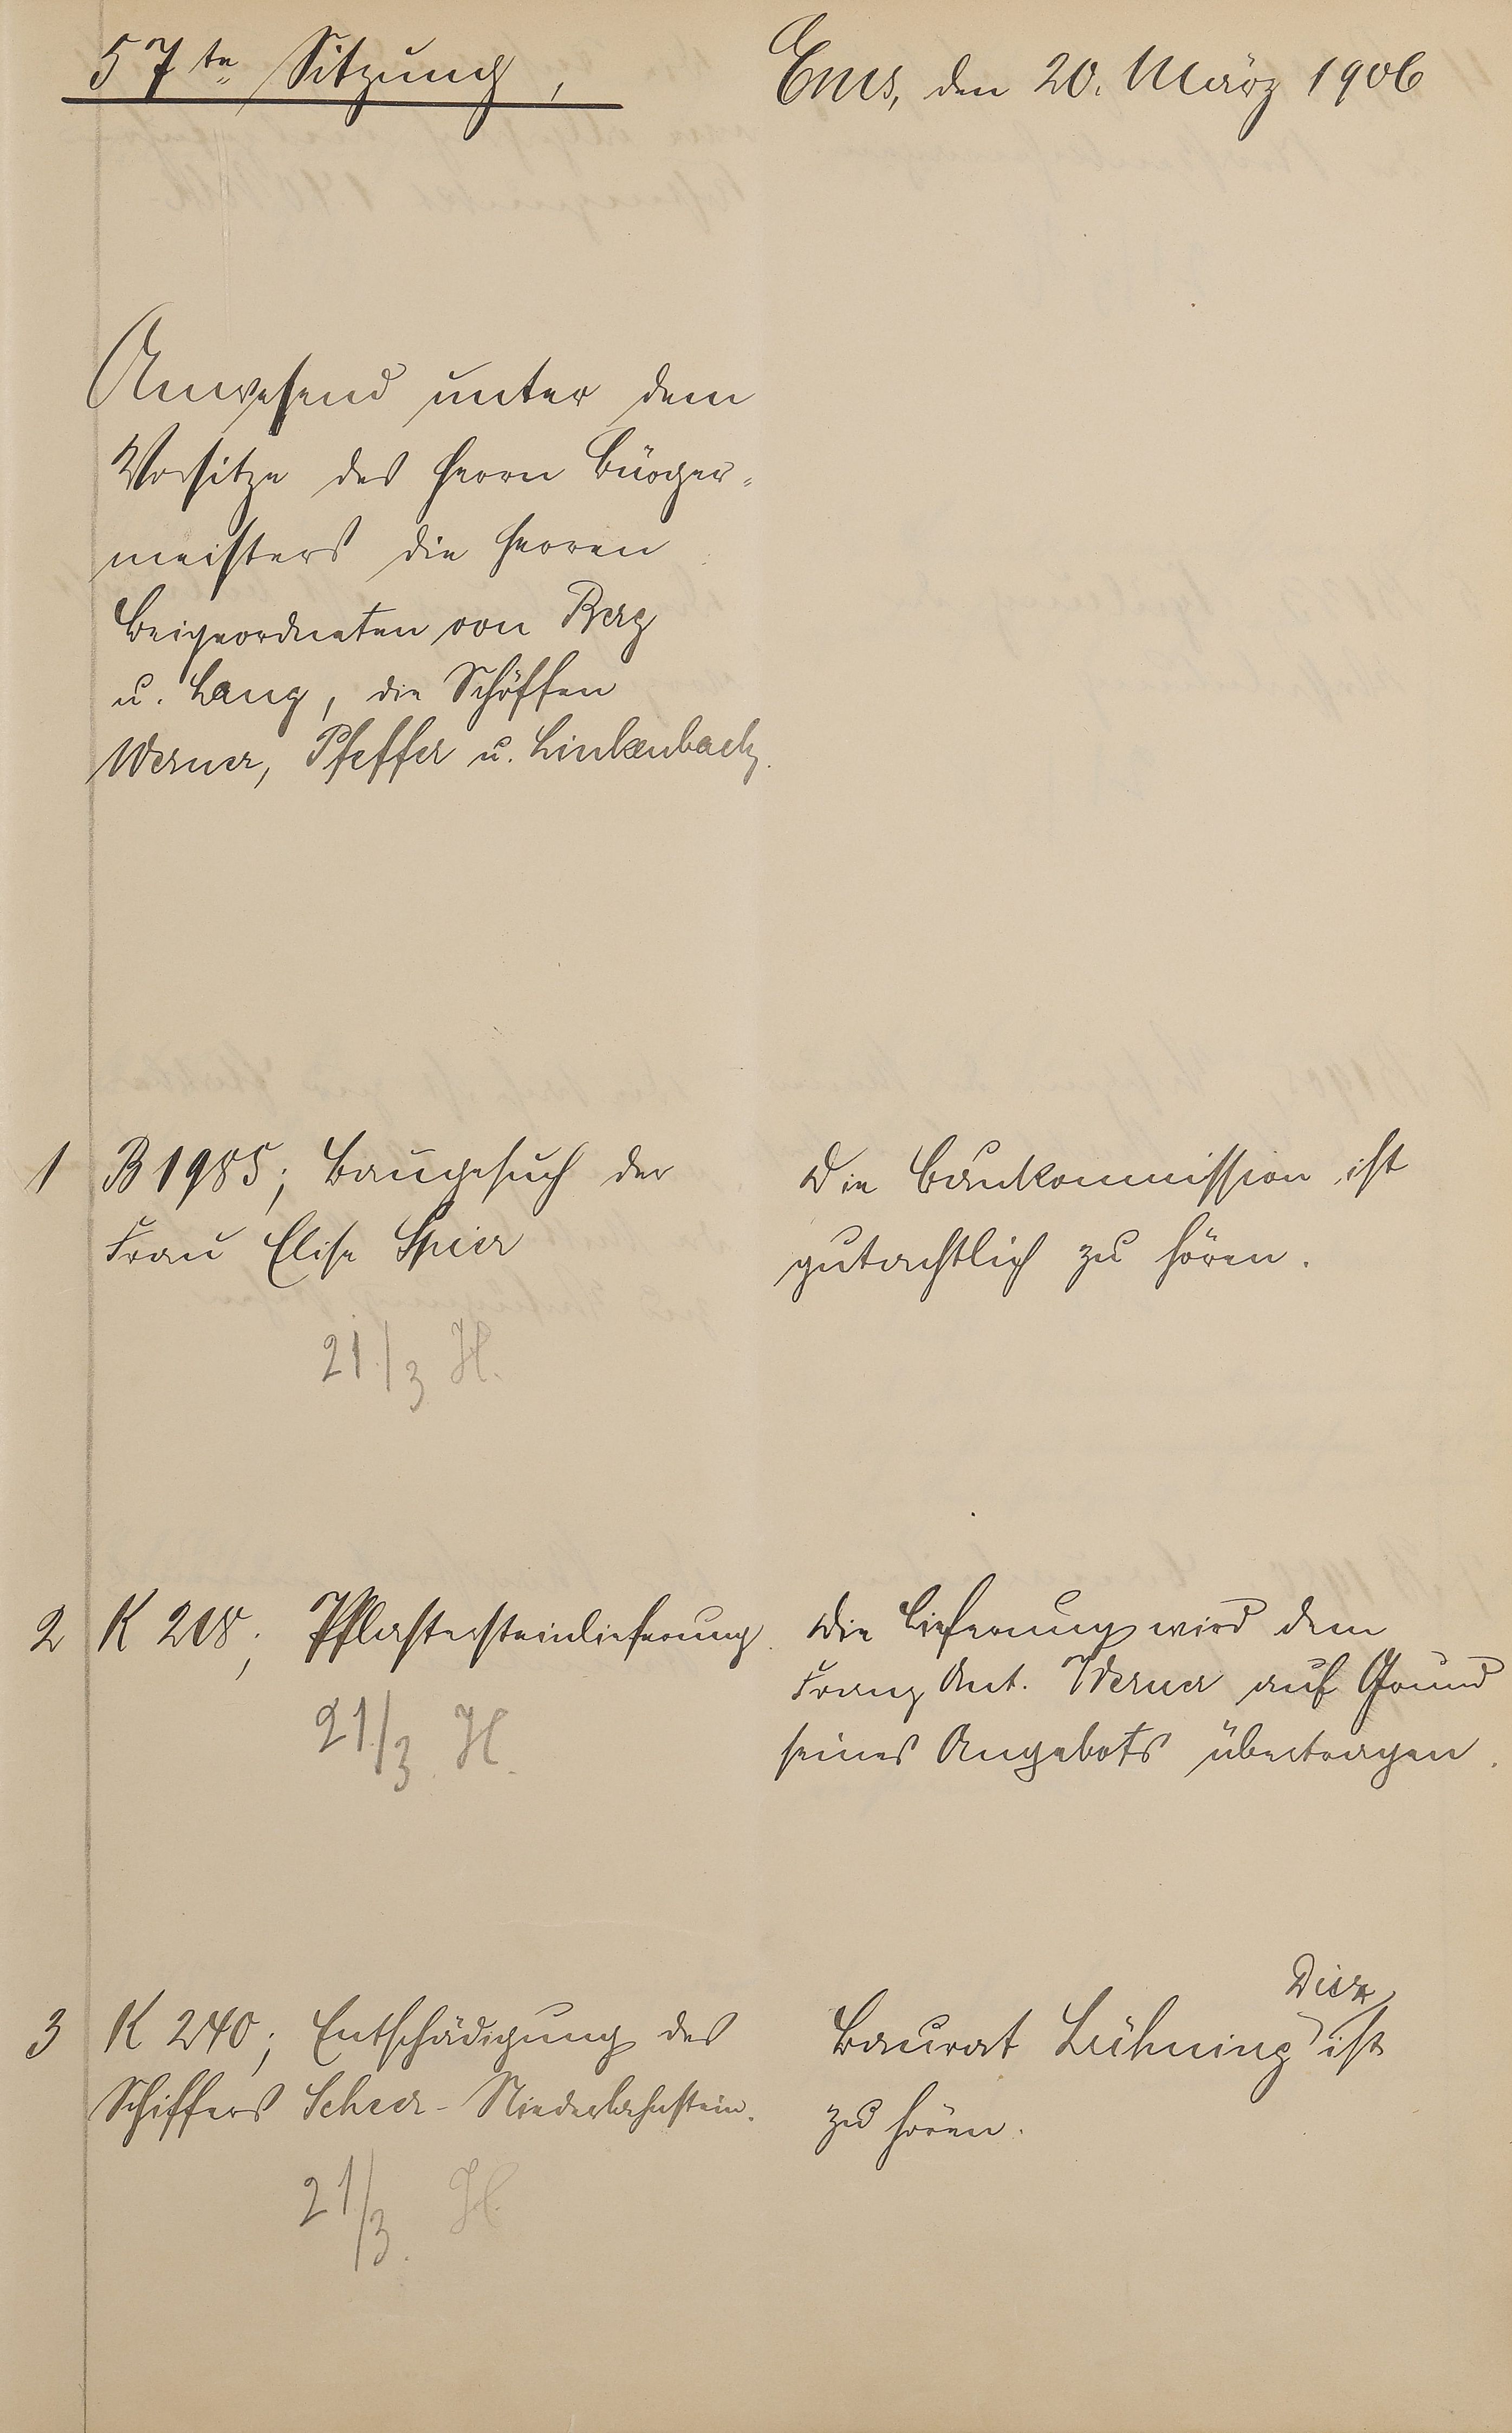 57te Sitzung,
Ems, den 20. März 1906
Anwesend unter dem
Vorsitze des Herrn Bürger-
meisters die Herren
Beigeordneten von Berg
u. Lang, die Schöffen
Werner, Pfeffer u. Linkenbach.
1 B 1985; Baugesuch der
Frau Elise Spier
21./3 H.
Die Baukommission ist
gutachtlich zu hören.
2 K 218; Pflastersteinlieferung
21./3. H.
Die Lieferung wird dem
Franz Ant. Werner auf Grund
seines Angebots übertragen.
3 K 240; Entschädigung des
Schiffers Scheer-Niederlahnstein.
21/3. H.
Diez
Baurat Lühning ist
zu hören.